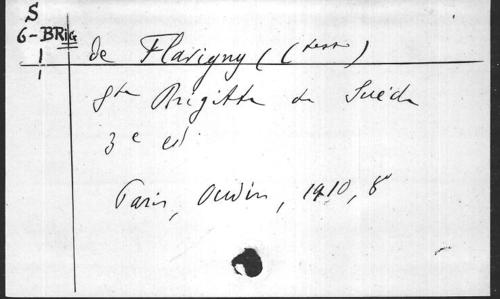 S
6-BRIG
1
1
de Flavigny (Ctesse)
Ste Brigitte de Suède
3e ed.
Paris, Oudin, 1910, 8°